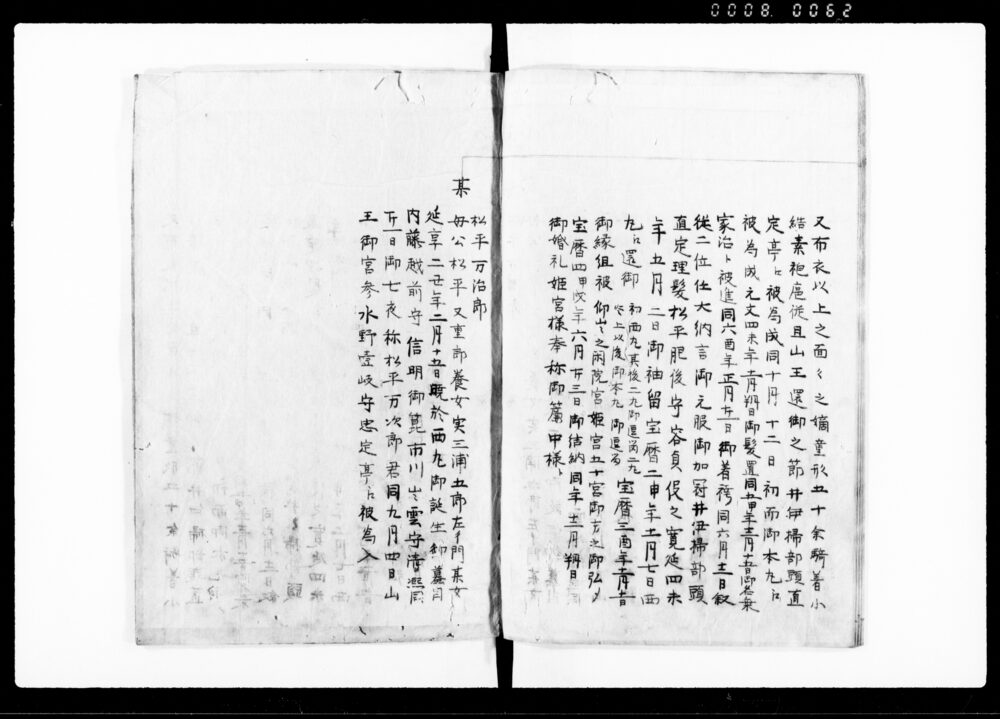 0008 0062
又布衣以上之面々之嫡童形五十余騎着小
結素袍扈従且山王還御之節井伊掃部頭直
定亭江被為成同十月十二日初而御本丸江
被為成元文四未年十一月朔日御髪置同五申年十二月十五日御名乗
家治ト被進同六酉年正月廿一日御着袴同六月十一日叙
従二位任大納言御元服御加冠井伊掃部頭
直定理髪松平肥後守容貞役之寛延四未
年五月二日御袖留宝暦二申年十一月七日西
丸江還御
御縁組被仰出之両院宮姫宮五十宮御方之御弘メ
宝暦四甲戌年六月廿三日御結納同年十二月朔日
御婚礼姫宮様奉称御簾中様
某
松平万治郎
母公松平又重郎養女実三浦五郎左衛門某女
延享二丑年二月十五日暁於西丸御誕生御蟇目
内藤越前守信明御箆市川出雲守清凞同
廿一日御七夜称松平万次郎君同九月四日山
王御宮参水野壱岐守忠定亭江被為入